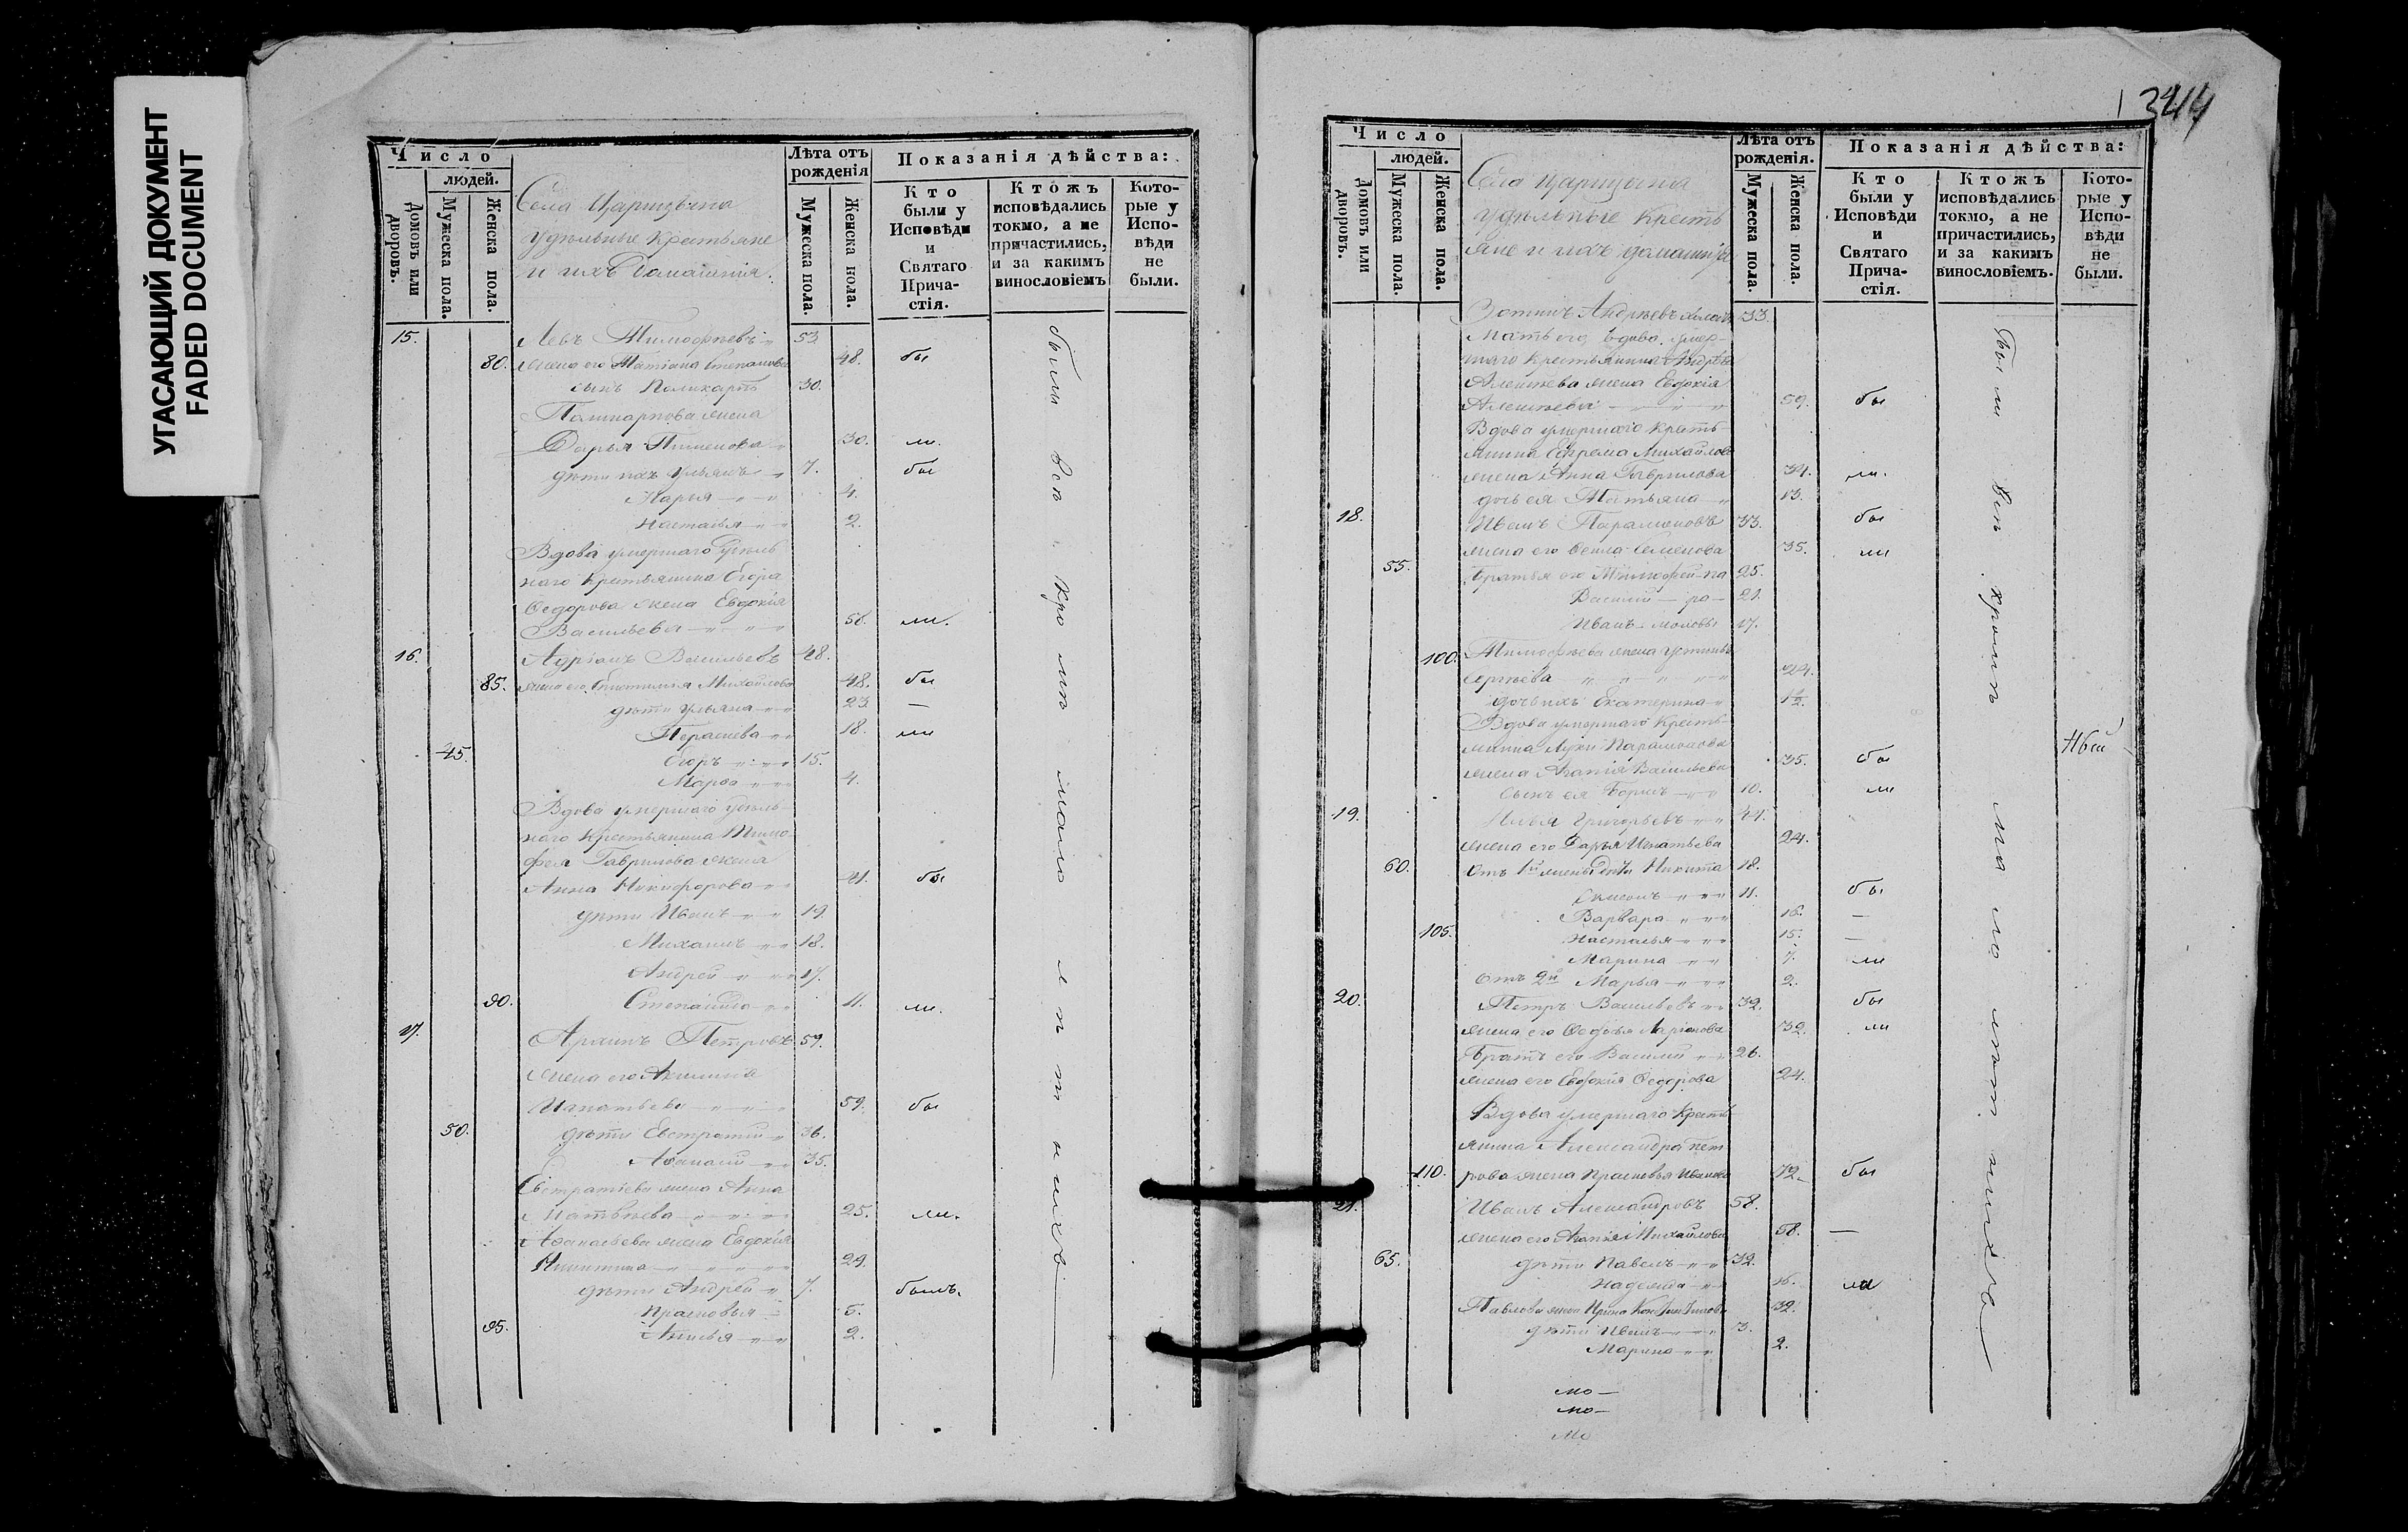 УГАСАЮЩИЙ ДОКУМЕНТ
FADED DOCUMENT
Число
людей.
Домовъ или дворовъ.
Мужеска пола.
Женска пола.
Села Царицына
удѣльные крестьяне
и ихъ домашнія.
Лѣта отъ рожденія
Мужеска пола.
Женска пола.
Показанія дѣйства:
Кто были у Исповѣди и Святаго Прича-стія.
Ктожъ исповѣдались токмо, а не причастились, и за какимъ винословіемъ
Кото-рые у Испо-вѣди не были.
15. Левъ Тимофѣевъ 53
80. жена его Татіана Степанова 48. бы
сынъ Поликарпъ 30.
Поликарпова жена
Дарья Пименова 30. ли.
дѣти ихъ Ульянъ 7. бы
Марья 4.
Настасья 2.
Вдова умершаго удѣль
наго крестьянина Егора
Ѳедорова жена Евдокія
Васильева 56. ли.
16. Адріанъ Васильевъ 48.
85. жена его Михайлова 48. бы
дѣти Ульяна 23 —
18. ли
45. Егоръ 15.
Марѳа 4.
Вдова умершаго удѣль
наго крестьянина Тимо
фея Гаврилова жена
Анна Никифорова 41. бы
дѣти Иванъ 19.
Михаилъ 18.
Андрей 17.
90. Степанида 11. ли.
17. Архипъ Петровъ 59.
жена его Акилина
Игнатьева 59. бы
50. дѣти Евстратій 36.
Аѳанасій 35.
Евстратіева жена Анна
Матвѣева 25. ли.
Аѳанасьева жена Евдокія
Никитина 29.
дѣти Андрей 7. былъ.
Прасковья 5.
95. 2.
были всѣ кромѣ малолѣтнихъ
344
Число
людей.
Домовъ или дворовъ.
Мужеска пола.
Женска пола.
Села Царицына
удѣльные кресть
яне и ихъ домашнія
Лѣта отъ рожденія.
Мужеска пола.
Женска пола.
Показанія дѣйства:
Кто были у Исповѣди и Святаго Прича-стія.
Ктожъ исповѣдались токмо, а не причастились, и за какимъ винословіемъ.
Кото-рые у Испо-вѣди не были.
Андрѣевъ 33.
Мать его вдова умер-
шаго крестьянина Андрѣя
Алексѣева жена Евдокія
Алексѣева 59. бы
Вдова умершаго кресть
янина Ефрема Михайлова
жена Анна Гаврилова 34. ли.
дочь ея Татьяна 13.
18. Иванъ Парамоновъ 33. бы
жена его Ѳекла Семенова 35. ли
55. Братья его Тимофей-па 25.
Василій — ро — 21.
Иванъ — моновы 17.
100. Тимофѣева жена Устинья
Сергѣева 24.
дочь ихъ Екатерина 1½
Вдова умершаго кресть
янина Луки Парамонова
жена Агапія Васильева 35. бы
сынъ ея Борисъ 10. ли
19. Илья Григорьевъ 44.
жена его Дарья Игнатьева 24.
60. Отъ 1й жены дѣти Никита 18.
Семенъ 11. бы
Варвара 16. —
105. Настасья 15. —
Марина 7. ли
Отъ 2й Марья 2.
20. Петръ Васильевъ 32. бы
жена его Ѳедосья Ларіонова 32. ли
Братъ его Василій 26.
жена его Евдокія Ѳедорова 24.
Вдова умершаго кресть
янина Александра Пет
110. рова жена Прасковья Иванова 72. бы
21. Иванъ Александровъ 58.
жена его Агапія Михайлова 58. —
65. дѣти Павелъ 32.
Надежда 16. ли
Павлова жена Ирина 32.
дѣти Иванъ 3.
Марина 2.
были всѣ кромѣ малолѣтнихъ
мо —
мо —
мо